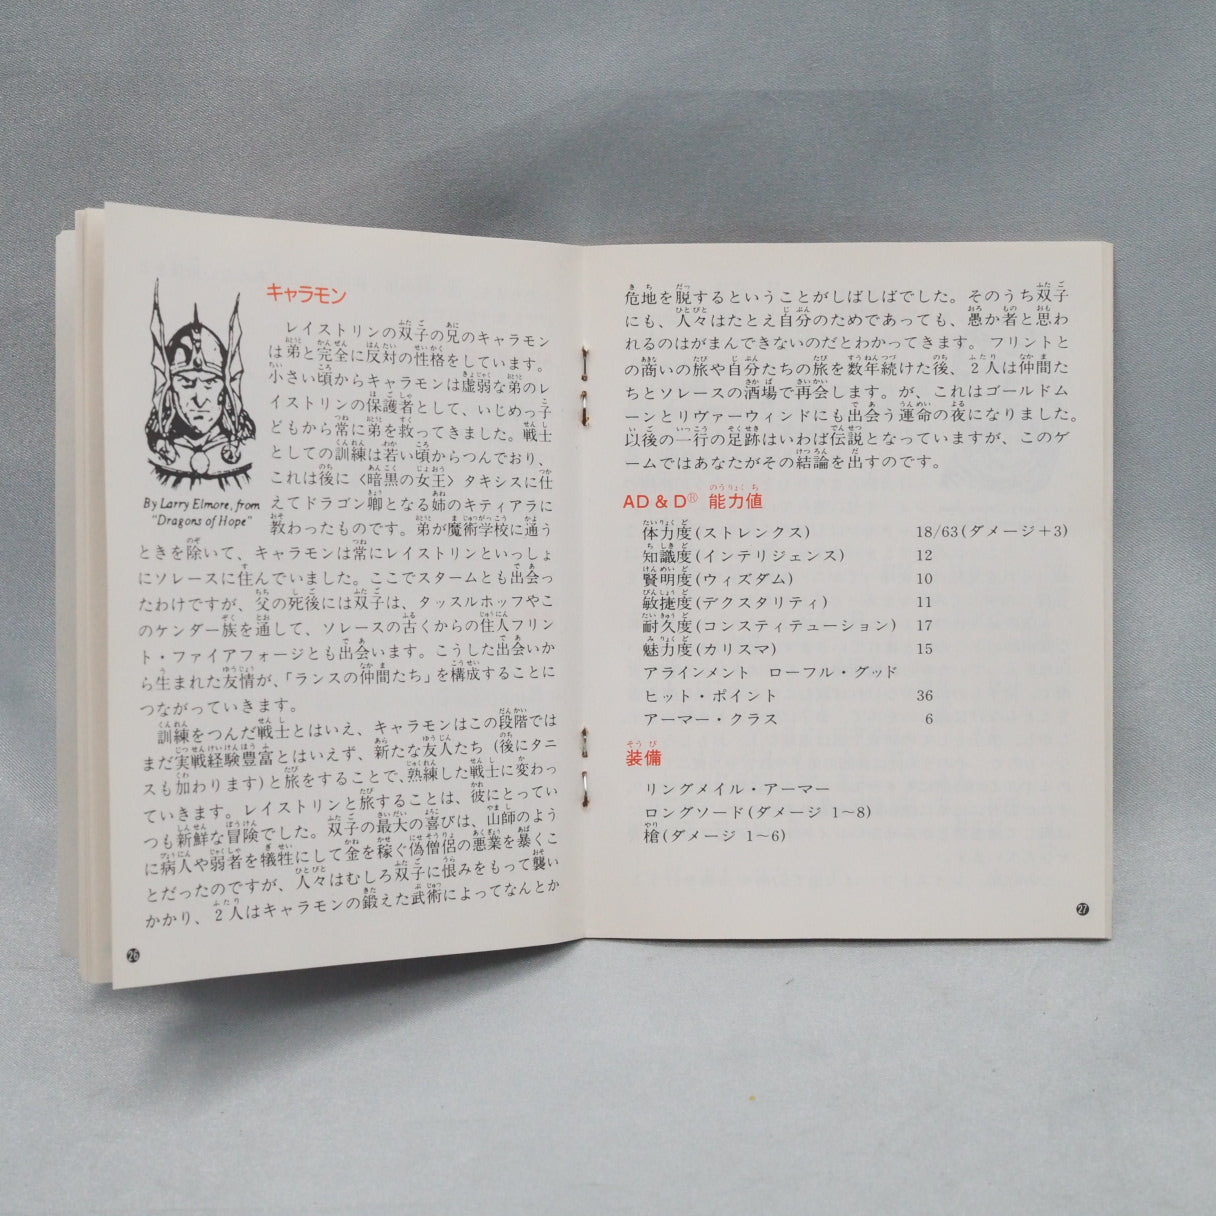 キャラモン
レイストリンの双子の兄のキャラモン
は弟と完全に反対の性格をしています。
小さい頃からキャラモンは虚弱な弟のレ
イストリンの保護者として、いじめっ子
どもから常に弟を救ってきました。戦士
としての訓練は若い頃からつんでおり、
これは後に〈暗黒の女王〉タキシスに仕
えてドラゴン卿となる姉のキティアラに
教わったものです。弟が魔術学校に通う
By Larry Elmore, from
"Dragons of Hope"
ときを除いて、キャラモンは常にレイストリンといっしょ
にソレースに住んでいました。ここでスタームとも出会っ
たわけですが、父の死後には双子は、タッスルホッフやこ
のケンダー族を通して、ソレースの古くからの住人フリン
ト・ファイアフォージとも出会います。こうした出会いか
ら生まれた友情が、「ランスの仲間たち」を構成することに
つながっていきます。
訓練をつんだ戦士とはいえ、キャラモンはこの段階では
まだ実戦経験豊富とはいえず、新たな友人たち（後にタニ
スも加わります）と旅をすることで、熟練した戦士に変わっ
ていきます。レイストリンと旅することは、彼にとってい
つも新鮮な冒険でした。双子の最大の喜びは、山師のよう
に病人や弱者を犠牲にして金を稼ぐ偽僧侶の悪業を暴くこ
とだったのですが、人々はむしろ双子に恨みをもって襲い
かかり、2人はキャラモンの鍛えた武術によってなんとか
26
危地を脱するということがしばしばでした。そのうち双子
にも、人々はたとえ自分のためであっても、愚か者と思わ
れるのはがまんできないのだとわかってきます。フリントと
の商いの旅や自分たちの旅を数年続けた後、2人は仲間た
ちとソレースの酒場で再会します。が、これはゴールドム
ーンとリヴァーウィンドにも出会う運命の夜になりました。
以後の一行の足跡はいわば伝説となっていますが、このゲ
ームではあなたがその結論を出すのです。
AD & D® 能力値
体力度(ストレンクス) 18/63(ダメージ+3)
知識度(インテリジェンス) 12
賢明度(ウィズダム) 10
敏捷度(デクスタリティ) 11
耐久度(コンスティテューション) 17
魅力度(カリスマ) 15
アラインメント ローフル・グッド
ヒット・ポイント 36
アーマー・クラス 6
装備
リングメイル・アーマー
ロングソード(ダメージ 1~8)
槍(ダメージ 1~6)
27